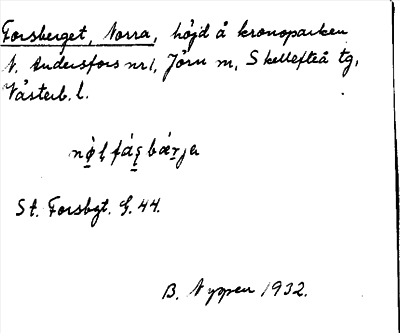 Forsberget, Norra, höjd å kronoparken
N. Andersfors nr 1, Jörn m, Skellefteå tg,
Västerb. l.
St. Forsbgt. G. 44.
B. Nyppen 1932.